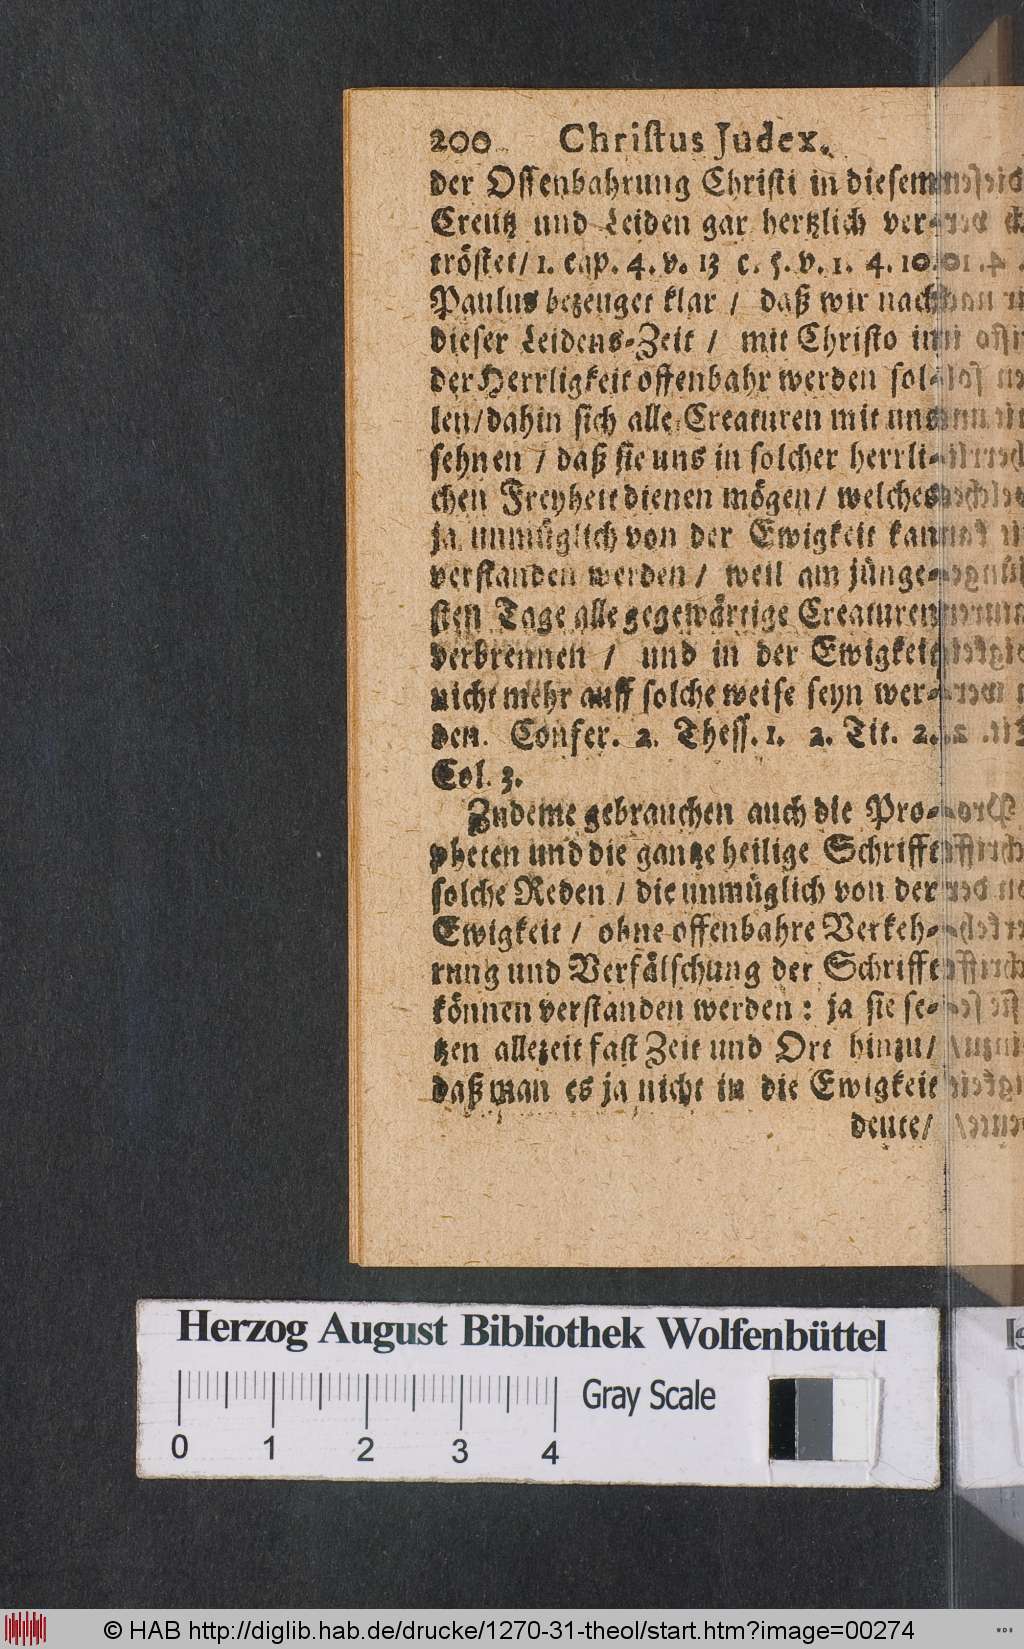 200 Christus Judex.
der Offenbahrung Christi in diesem
Creutz und Leiden gar hertzlich ver-
tröstet/ 1. cap. 4. v. 13 c. 5. v. 1. 4. 10.
Paulus bezeuget klar / daß wir nach
dieser Leidens-Zeit / mit Christo in
der Herrligkeit offenbahr werden sol-
len/dahin sich alle Creaturen mit uns
sehnen / daß sie uns in solcher herrli-
chen Freyheit dienen mögen/ welches
ja unmüglich von der Ewigkeit kan
verstanden werden/ weil am jünge-
sten Tage alle gegewärtige Creaturen
verbrennen / und in der Ewigkeit
nicht mehr auff solche weise seyn wer-
den. Confer. 2. Thess. 1. 2. Tit. 2.
Col. 3.
Zudeme gebrauchen auch die Pro-
pheten und die gantze heilige Schrifft
solche Reden / die unmüglich von der
Ewigkeit / ohne offenbahre Verkeh-
rung und Verfälschung der Schrifft
können verstanden werden : ja sie se-
tzen allezeit fast Zeit und Ort hinzu/
daß man es ja nicht in die Ewigkeit
deute/
Herzog August Bibliothek Wolfenbüttel
Gray Scale
0 1 2 3 4
© HAB http://diglib.hab.de/drucke/1270-31-theol/start.htm?image=00274